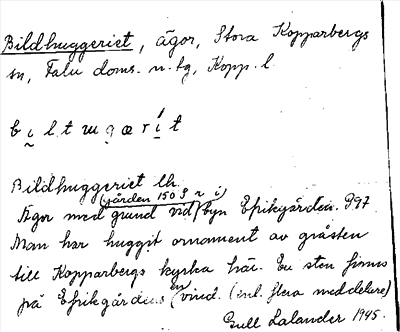 Bildhuggeriet, ägor, Stora Kopparbergs
sn, Falu doms. n. tg, Kopp. l.
Bildhuggeriet lh.
(gården 150 S n i)
Ägor med grund vid byn Epikgården. 997
Man har huggit ornament av gråsten
till Kopparbergs kyrka här. En sten finns
på Epikgårdens vind. (enl. flera meddelare)
Gull Lalander 1945.